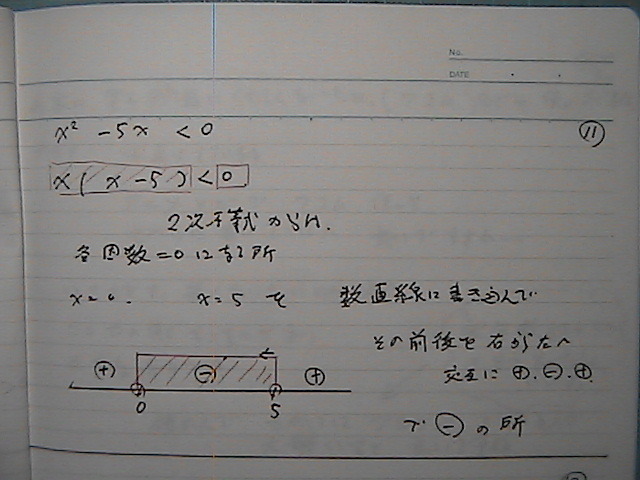 No.
DATE
x² - 5x < 0
⑪
x(x-5) < 0
2次不等式から
各因数=0になる所
x=0. x=5 を 数直線に書き込んで
その前後を右から左へ
交互に ⊕.⊖.⊕.
⊕ ⊖ ⊕
0 5
で ⊖ の所